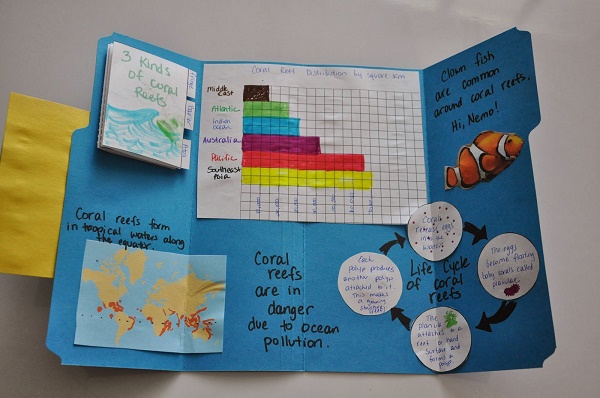 3 Kinds
of Coral
Reefs
Coral Reef Distribution by square km
Middle
East
Atlantic
Indian
Ocean
Australia
Pacific
Southeast
Asia
Clown fish
are common
around coral reefs.
Hi, Nemo!
Coral reefs form
in tropical waters along
the equator.
Coral
reefs are
in danger
due to ocean
pollution.
Life Cycle
of coral
reefs
Corals
release eggs
in the
water.
The eggs
become floating
baby corals called
planulae.
The planula
attaches to a
reef or hard
surface and
forms a
polyp.
Each
polyp produces
another polyp
attached to it.
This makes a
growing